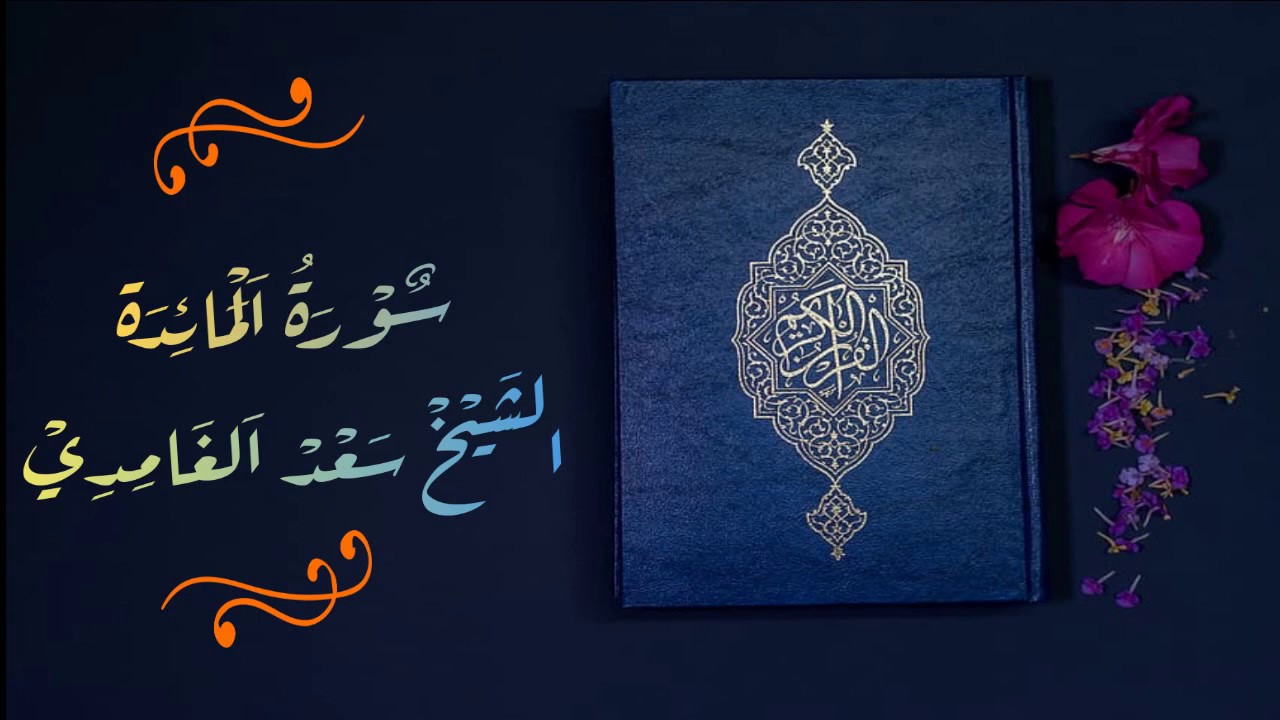 سُوْرَةُ اَلْمَائِدَة
الشَيْخْ سَعْدْ اَلغَامِدِيْ
القرآن الكريم